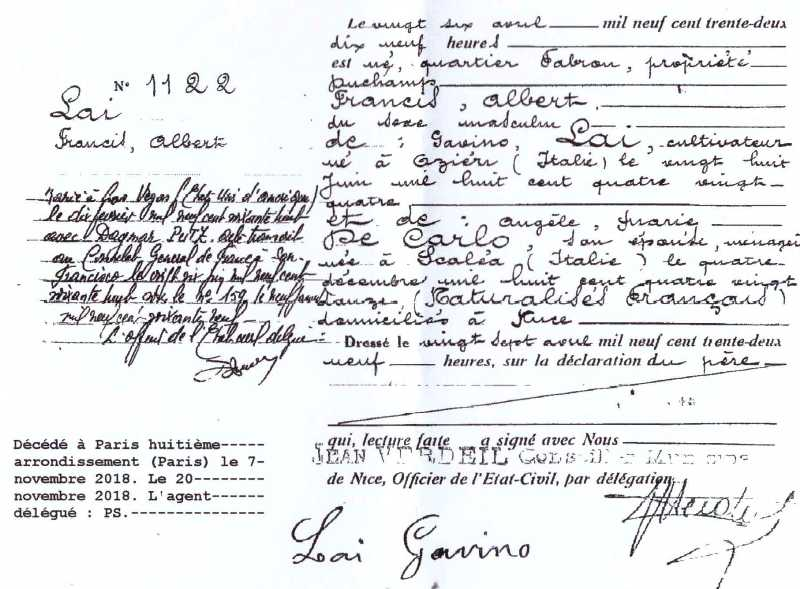 N° 1122
Lai
Francis, Albert
Marié à Las Vegas (Etats Unis d'Amérique)
le dix février mil neuf cent soixante huit
avec Dagmar PUTZ. acte transcrit
au Consulat Général de France San
Francisco le vingt six juin mil neuf cent
soixante huit sous le N° 159. le neuf
mil neuf cent soixante neuf
L'officier de l'Etat civil délégué :
Décédé à Paris huitième-----
arrondissement (Paris) le 7-
novembre 2018. Le 20--------
novembre 2018. L'agent------
délégué : PS.---------------
Le vingt six avril mil neuf cent trente-deux
dix neuf heures
est né, quartier Fabron, propriété
Puchamps
Francis, Albert
du sexe masculin
de : Gavino, Lai, cultivateur
né à Oziéri (Italie) le vingt huit
Juin mil huit cent quatre vingt-
quatre
et de : Angèle, Marie
De Carlo, son épouse, ménagère
née à Scaléa (Italie) le quatre
décembre mil huit cent quatre vingt
quinze (Naturalisés Français)
domiciliés à Nice
Dressé le vingt sept avril mil neuf cent trente-deux
neuf heures, sur la déclaration du père
qui, lecture faite a signé avec Nous
JEAN VERDEIL Conseiller Municipal
de Nice, Officier de l'Etat-Civil, par délégation
Lai Gavino